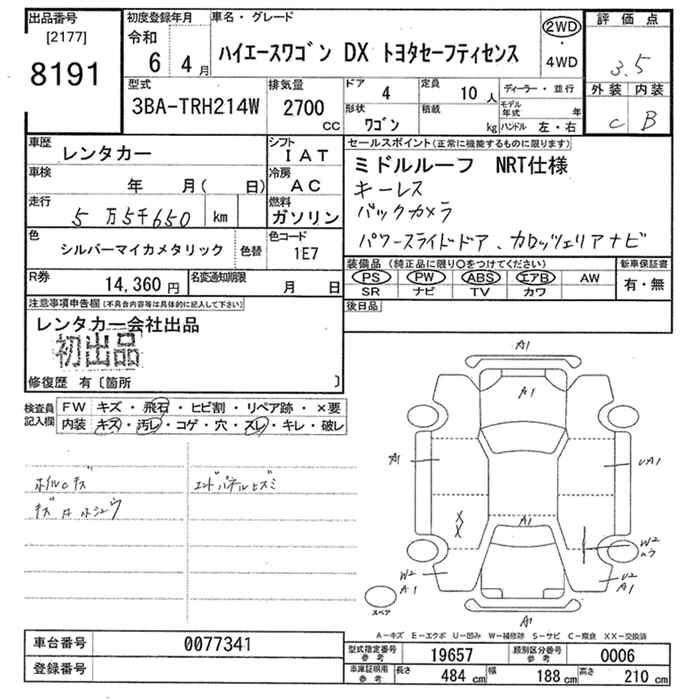 出品番号
[2177]
8191
初度登録年月
令和
6年 4月
車名・グレード
ハイエースワゴン DX トヨタセーフティセンス
2WD
・
4WD
評価点
3.5
外装 内装
C B
型式
3BA-TRH214W
排気量
2700
CC
ドア
4
形状
ワゴン
定員
10人
積載
kg
ディーラー・並行
モデル年式 年
ハンドル 左・右
車歴
レンタカー
シフト
IAT
車検
年 月( 日)
冷房
AC
走行
5万5千650 km
燃料
ガソリン
色
シルバーマイカメタリック
色替
色コード
1E7
R券
14,360円
名変通知期限
月 日
セールスポイント(正常に機能するものに限ります)
ミドルルーフ NRT仕様
キーレス
バックカメラ
パワースライドドア、カロッツェリアナビ
装備品(純正品に限り○をつけてください)
PS PW ABS エアB AW
SR ナビ TV カワ
新車保証書
有・無
後日品
注意事項申告欄(不具合内容等は具体的に記入して下さい)
レンタカー会社出品
初出品
修復歴 有〔箇所 〕
検査員記入欄
FW キズ・飛石・ヒビ割・リペア跡・×要
内装 キズ・汚レ・コゲ・穴・スレ・キレ・破レ
ホイルCキズ
エンドパネルヒズミ
A1
A1
A1
UA1
A1
XX
W2
W2
A1
U2
A1
A1
スペア
A-キズ E-エクボ U-凹み W-補修跡 S-サビ C-腐食 XX-交換済
車台番号
0077341
登録番号
型式指定番号
参考
19657
類別区分番号
参考
0006
車庫証明用
参考
長さ
484 cm
幅
188 cm
高さ
210 cm